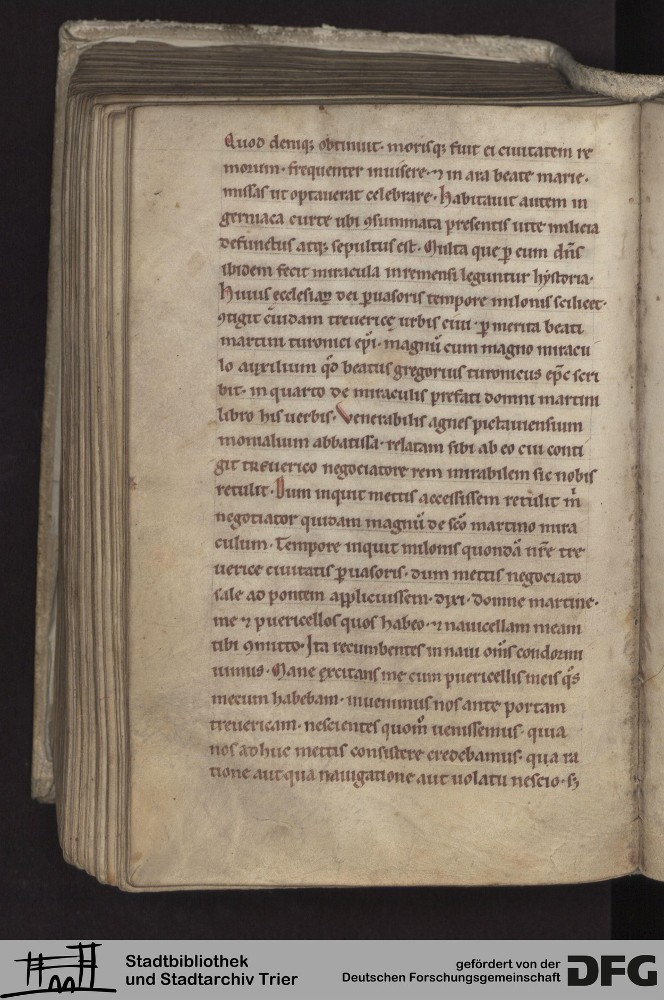 Quod deniq; obtinuit· morisq; fuit ei ciuitatem re
morum· frequenter inuisere· ⁊ in ara beate marie·
missas ut optauerat celebrare· Habitauit autem in
germaca curte ubi ꝯsummata presentis uite milicia
defunctus atq; sepultus est· Multa que ꝑ eum dn̄s
ibidem fecit miracula in remensi leguntur hystoria·
Huius ecclesiaꝝ dei ꝑuasoris tempore milonis scilicet·
ꝯtigit cuidam treuericę urbis ciui· ꝑ merita beati
martini turonici ep̄i· magnū cum magno miracu
lo auxilium· qd̄ beatus gregorius turonicus ep̄c scri
bit· in quarto de miraculis prefati domni martini
libro his uerbis· Venerabilis agnes pictauiensium
monialium abbatissa· relatam sibi ab eo cui conti
git treuerico negociatore rem mirabilem sic nobis
retulit· Dum inquit mettis accessissem retulit m̄
negotiator quidam magnū de sc̄o martino mira
culum· Tempore inquit milonis quondā nr̄e tre
uerice ciuitatis ꝑuasoris· dum mettis negociato
sale ad pontem applicuissem· dixi· domne martine·
me ⁊ puericellos quos habeo· ⁊ nauicellam meam
tibi ꝯmitto· Ita recumbentes in naui om̄s condormi
uimus· Mane excitans me cum puericellis meis q̄s
mecum habebam· inuenimus nos ante portam
treuericam· nescientes quom̊ uenissemus· quia
nos adhuc mettis consistere credebamus· qua ra
tione aut qua nauigatione aut uolatu nescio· sꝫ
Stadtbibliothek
und Stadtarchiv Trier
gefördert von der
Deutschen Forschungsgemeinschaft
DFG